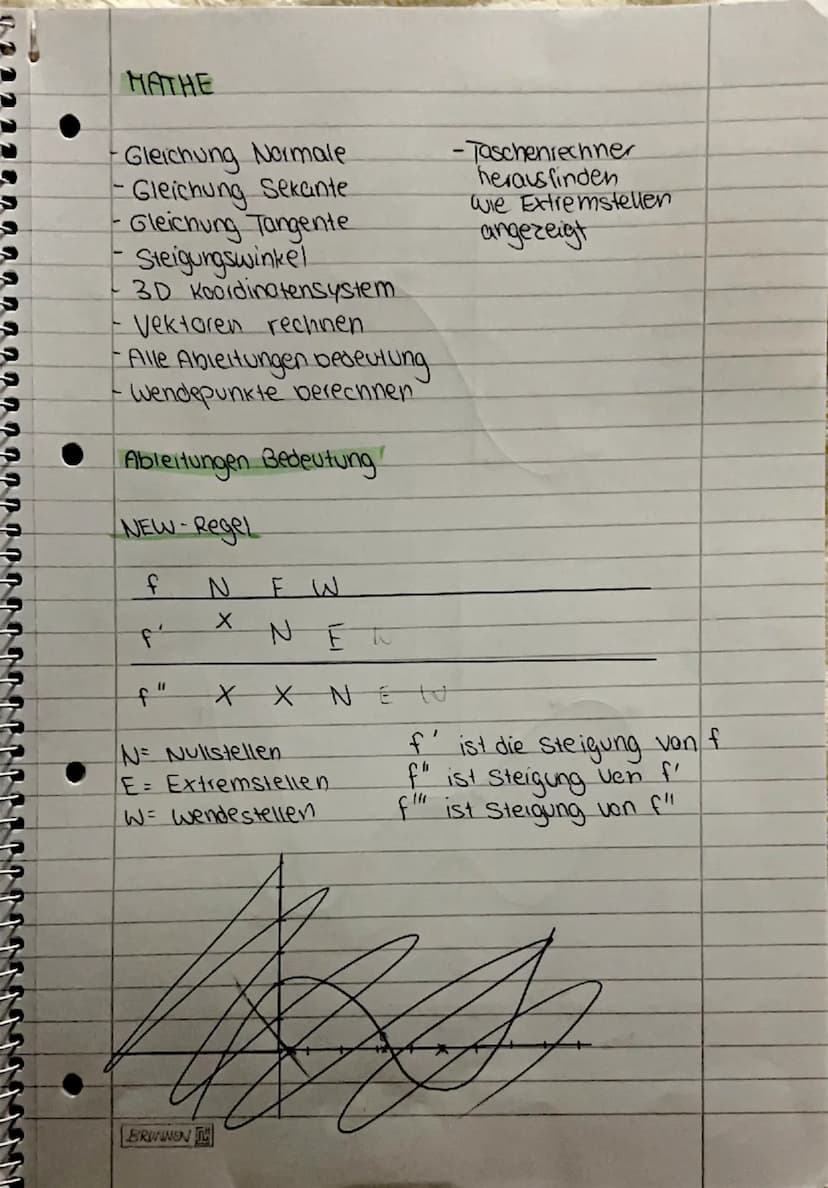 MATHE
- Gleichung Normale
- Gleichung Sekante
- Gleichung Tangente
- Steigungswinkel
- 3D Koordinatensystem
- Vektoren rechnen
- Alle Ableitungen bedeutung
- Wendepunkte berechnen
- Taschenrechner
herausfinden
wie Extremstellen
angezeigt
Ableitungen Bedeutung
NEW-Regel
f N E W
f' X N E W
f'' X X N E W
N= Nullstellen
E= Extremstellen
W= Wendestellen
f' ist die Steigung von f
f'' ist Steigung von f'
f''' ist Steigung von f''
BRUNNEN